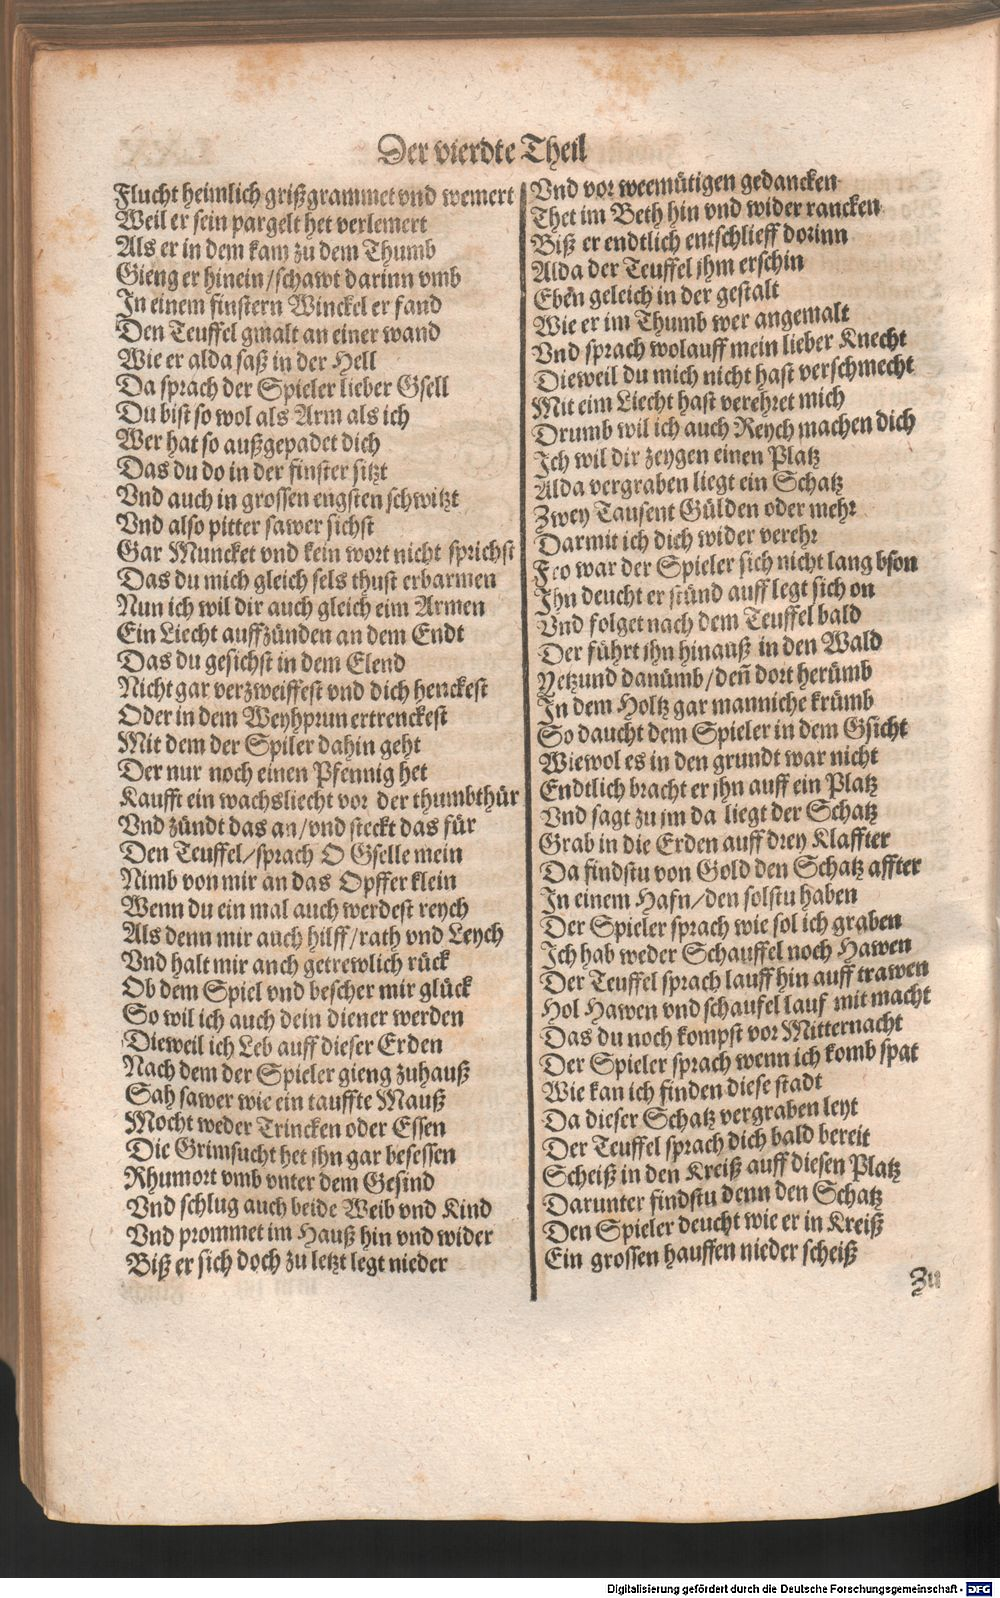 Der vierdte Theil
Flucht heimlich grißgrammet vnd wemert
Weil er sein pargelt het verlemert
Als er in dem kam zu dem Thumb
Gieng er hinein/schawt darinn vmb
In einem finstern Winckel er fand
Den Teuffel gmalt an einer wand
Wie er alda saß in der Hell
Da sprach der Spieler lieber Gsell
Du bist so wol als Arm als ich
Wer hat so außgepadet dich
Das du do in der finster sitzt
Vnd auch in grossen engsten schwitzt
Vnd also pitter sawer sichst
Gar Muncket vnd kein wort nicht sprichst
Das du mich gleich sels thust erbarmen
Nun ich wil dir auch gleich eim Armen
Ein Liecht auffzünden an dem Endt
Das du gesichst in dem Elend
Nicht gar verzweiffest vnd dich henckest
Oder in dem Weyhprun ertrenckest
Mit dem der Spiler dahin geht
Der nur noch einen Pfennig het
Kaufft ein wachsliecht vor der thumbthür
Vnd zündt das an/vnd steckt das für
Den Teuffel/sprach O Gselle mein
Nimb von mir an das Opffer klein
Wenn du ein mal auch werdest reych
Als denn mir auch hilff/rath vnd Leych
Vnd halt mir anch getrewlich rück
Ob dem Spiel vnd bescher mir glück
So wil ich auch dein diener werden
Dieweil ich Leb auff dieser Erden
Nach dem der Spieler gieng zuhauß
Sah sawer wie ein tauffte Mauß
Mocht weder Trincken oder Essen
Die Grimsucht het ihn gar besessen
Rhumort vmb vnter dem Gesind
Vnd schlug auch beide Weib vnd Kind
Vnd prommet im Hauß hin vnd wider
Biß er sich doch zu letzt legt nieder
Vnd vor weemütigen gedancken
Thet im Beth hin vnd wider rancken
Biß er endtlich entschlieff dorinn
Alda der Teuffel ihm erschin
Eben geleich in der gestalt
Wie er im Thumb wer angemalt
Vnd sprach wolauff mein lieber Knecht
Dieweil du mich nicht hast verschmecht
Mit eim Liecht hast verehret mich
Drumb wil ich auch Reych machen dich
Ich wil dir zeygen einen Platz
Alda vergraben liegt ein Schatz
Zwey Tausent Gülden oder mehr
Darmit ich dich wider verehr
Fro war der Spieler sich nicht lang bson
Ihn deucht er stünd auff legt sich on
Vnd folget nach dem Teuffel bald
Der führt ihn hinauß in den Wald
Yetzund danümb/deñ dort herümb
In dem Holtz gar manniche krümb
So daucht dem Spieler in dem Gsicht
Wiewol es in den grundt war nicht
Endtlich bracht er ihn auff ein Platz
Vnd sagt zu im da liegt der Schatz
Grab in die Erden auff drey Klaffter
Da findstu von Gold den Schatz affter
In einem Hafn/den solstu haben
Der Spieler sprach wie sol ich graben
Ich hab weder Schauffel noch Hawen
Der Teuffel sprach lauff hin auff trawen
Hol Hawen vnd schaufel lauf mit macht
Das du noch kompst vor Mitternacht
Der Spieler sprach wenn ich komb spat
Wie kan ich finden diese stadt
Da dieser Schatz vergraben leyt
Der Teuffel sprach dich bald bereit
Scheiß in den Kreiß auff diesen Platz
Darunter findstu denn den Schatz
Den Spieler deucht wie er in Kreiß
Ein grossen hauffen nieder scheiß
Zu
Digitalisierung gefördert durch die Deutsche Forschungsgemeinschaft - DFG